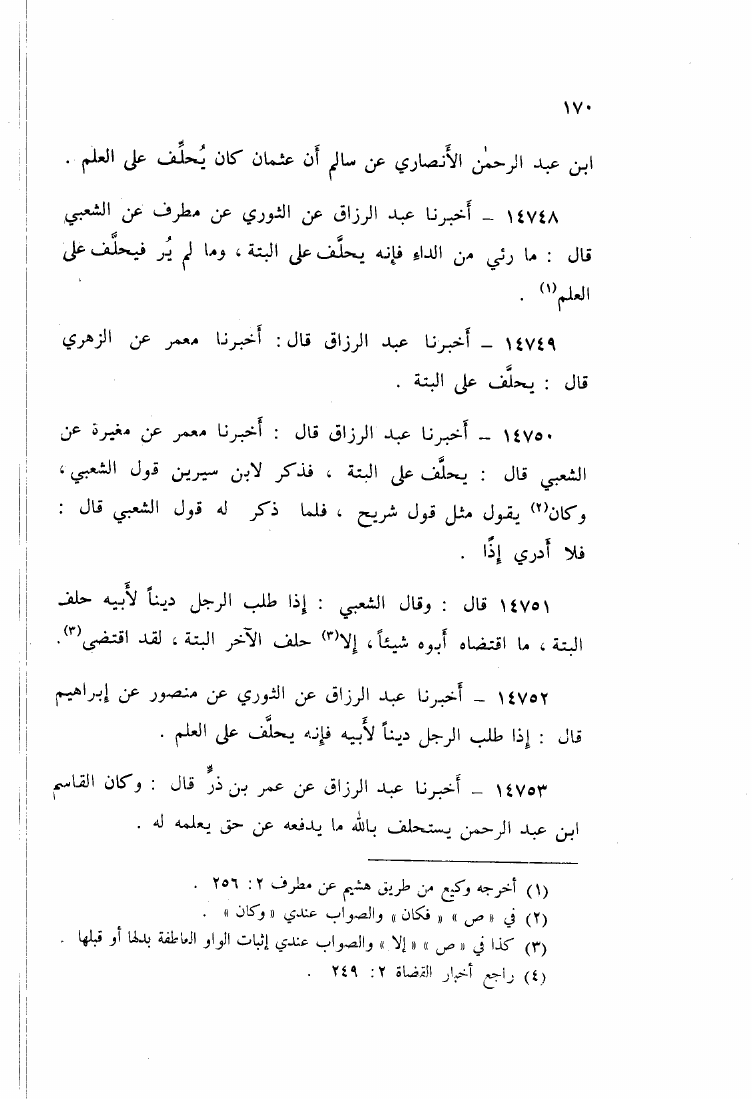 ١٧٠
ابن عبد الرحمٰن الأنصاري عن سالم أن عثمان كان يُحلِّف على العلم .
١٤٧٤٨ – أخبرنا عبد الرزاق عن الثوري عن مطرف عن الشعبي
قال : ما رئي من الداء فإنه يحلَّف على البتة ، وما لم يُر فيحلَّف على
العلم(١) .
١٤٧٤٩ – أخبرنا عبد الرزاق قال : أخبرنا معمر عن الزهري
قال : يحلَّف على البتة .
١٤٧٥٠ – أخبرنا عبد الرزاق قال : أخبرنا معمر عن مغيرة عن
الشعبي قال : يحلَّف على البتة ، فذكر لابن سيرين قول الشعبي ،
وكان(٢) يقول مثل قول شريح ، فلما ذكر له قول الشعبي قال :
فلا أدري إذًا .
١٤٧٥١ قال : وقال الشعبي : إذا طلب الرجل ديناً لأبيه حلف
البتة ، ما اقتضاه أبوه شيئاً ، إلا(٣) حلف الآخر البتة ، لقد اقتضى(٣).
١٤٧٥٢ – أخبرنا عبد الرزاق عن الثوري عن منصور عن إبراهيم
قال : إذا طلب الرجل ديناً لأبيه فإنه يحلَّف على العلم .
١٤٧٥٣ – أخبرنا عبد الرزاق عن عمر بن ذرٍّ قال : وكان القاسم
ابن عبد الرحمن يستحلف بالله ما يدفعه عن حق يعلمه له .
(١) أخرجه وكيع من طريق هشيم عن مطرف ٢ : ٢٥٦ .
(٢) في « ص » « فكان » والصواب عندي « وكان » .
(٣) كذا في « ص » « إلا » والصواب عندي إثبات الواو العاطفة بدلها أو قبلها .
(٤) راجع أخبار القضاة ٢ : ٢٤٩ .